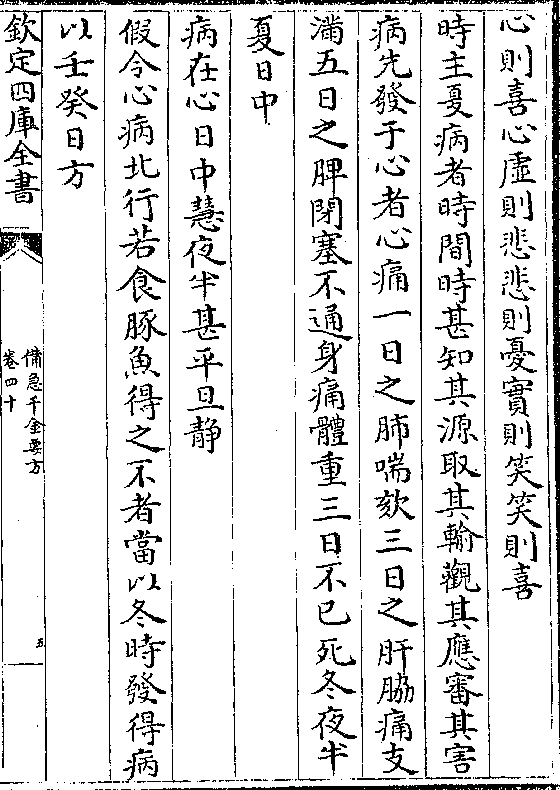 心則喜心虛則悲悲則憂實則笑笑則喜
時主夏病者時間時甚知其源取其輸觀其應審其害
病先發于心者心痛一日之肺喘欬三日之肝脇痛支
滿五日之脾閉塞不通身痛體重三日不已死冬夜半
夏日中
病在心日中慧夜半甚平旦靜
假令心病北行若食豚魚得之不者當以冬時發得病
以壬癸日方
欽定四庫全書
備急千金要方
卷四十
五